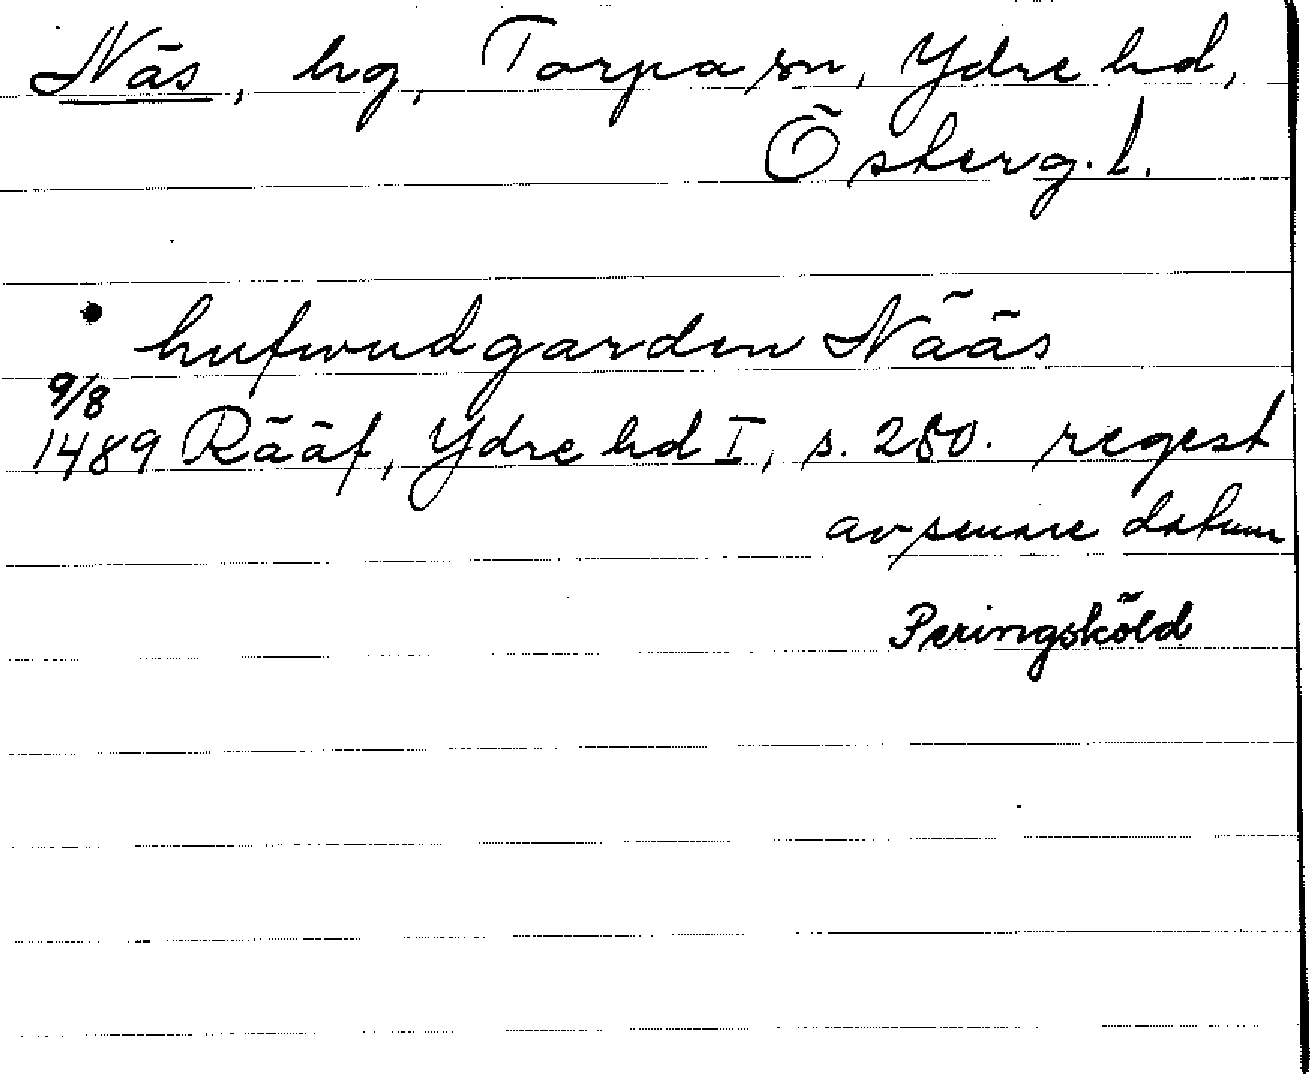 Näs, hg, Torpa sn, Ydre hd,
Österg. l.
• hufwudgarden Nääs
9/8
1489 Rääf, Ydre hd I, s. 280. regest
av senare datum
Peringsköld